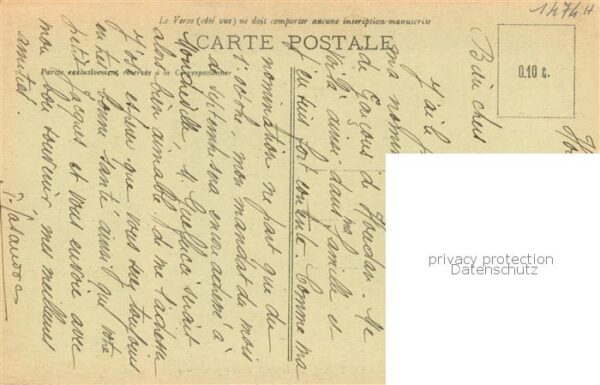 1474H
Le Verso (côté vue) ne doit comporter aucune inscription manuscrite
CARTE POSTALE
Partie exclusivement réservée à la Correspondance
0.10 c.
Bien chers
J'ai l
m'a nommé
de Garçons d Houdan. Me
voilà ainsi dans ma famille et
j'en suis fort contente. Comme ma
nomination ne part que du
1er octobre, mon mandat du mois
de septembre sera encore adressé à
M. serait
alors bien aimable de me l'adresser
J'espère que vous êtes toujours
en très bonne santé ainsi que votre
petit Jacques et vous envoie avec
mon bon souvenir mes meilleures
amitiés.
privacy protection
Datenschutz